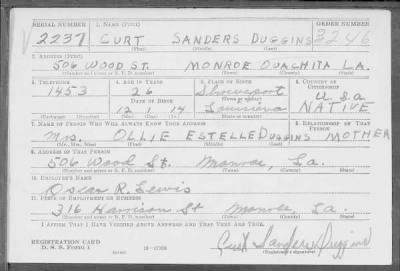 SERIAL NUMBER 1. NAME (Print) ORDER NUMBER
2237 CURT SANDERS DUGGINS 3246
(First) (Middle) (Last)
2. ADDRESS (Print)
506 WOOD ST. MONROE OUACHITA LA.
(Number and street or R. F. D. number) (Town) (County) (State)
3. TELEPHONE 4. AGE IN YEARS 5. PLACE OF BIRTH 6. COUNTRY OF CITIZENSHIP
1453 26 Shreveport U.S.A
DATE OF BIRTH (Town or county)
12 1 14 Louisiana NATIVE
(Exchange) (Number) (Mo.) (Day) (Yr.) (State or country)
7. NAME OF PERSON WHO WILL ALWAYS KNOW YOUR ADDRESS 8. RELATIONSHIP OF THAT PERSON
Mrs. OLLIE ESTELLE DUGGINS MOTHER
(Mr., Mrs., Miss) (First) (Middle) (Last)
9. ADDRESS OF THAT PERSON
506 Wood St. Monroe, La.
(Number and street or R. F. D. number) (Town) (County) (State)
10. EMPLOYER'S NAME
Oscar R. Lewis
11. PLACE OF EMPLOYMENT OR BUSINESS
316 Harrison St Monroe La.
(Number and street or R. F. D. number) (Town) (County) (State)
I AFFIRM THAT I HAVE VERIFIED ABOVE ANSWERS AND THAT THEY ARE TRUE.
REGISTRATION CARD
D. S. S. FORM 1
Curt Sanders Duggins